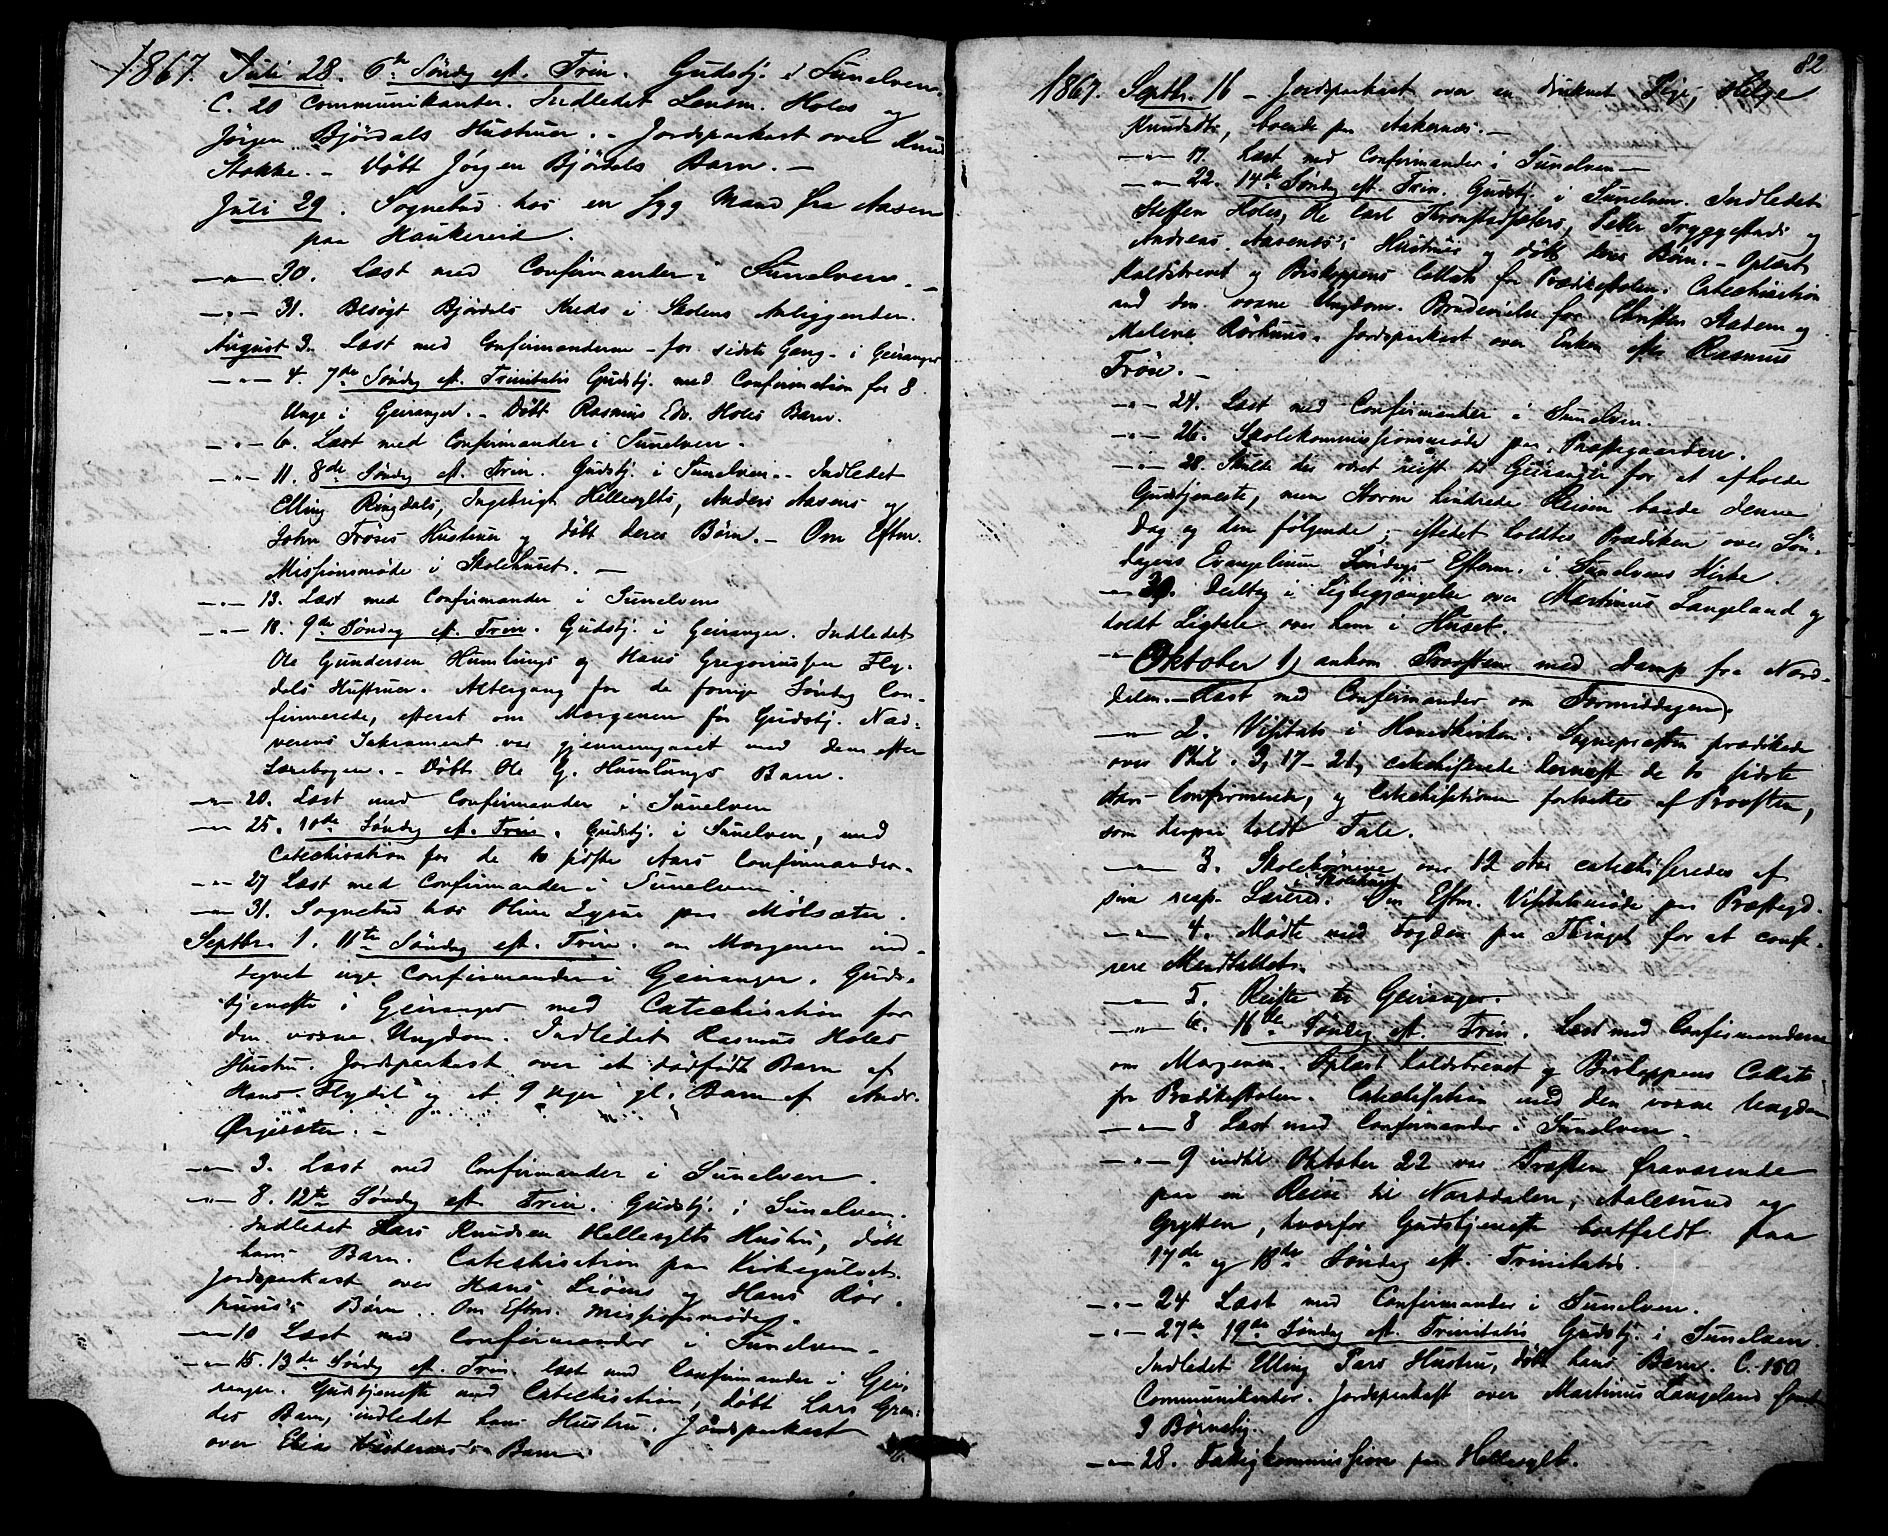 1867. Juli 28. 6te Söndg eft. Trin. Gudstj. i Sunelven.
C. 20 Communikanter. Indledet Lensm. Holes og
Jörgen Björdals Hustruer. - Jordspaakast over Knud
Stokke. - Döbt Jörgen Björdals Barn. -
Juli 29. Sognebud hos en syg Mand fra Aasen
paa Haukereid.
—"— 30. Læst med Confirmander i Sunelven. -
—"— 31. Besögt Björdals Kreds i Skolens Anliggender.
August 3. Læst med Confirmanderne - for sidste Gang - i Geiranger
—"— 4. 7de Söndg eft. Trinitatis Gudstj. med Confirmation for 8
Unge i Geiranger. - Döbt Rasmus Edv. Holes Barn.
—"— 6. Læst med Confirmander i Sunelven.
—"— 11. 8de Söndg eft. Trin. Gudstj. i Sunelven. - Indledet
Elling Ringdals, Ingebrigt Hellesylts, Anders Aasens og
John Tröens Hustruer og döbt deres Börn. - Om Eftm.
Missionsmöde i Skolehuset. -
—"— 13. Læst med Confirmander i Sunelven
—"— 18. 9de Söndg eft. Trin. Gudstj. i Geiranger. Indledet
Ole Gundersen Humlungs og Hans Gregoriussen Fly-
dals Hustruer. Altergang for de forrige Söndag Con-
firmerede, efterat om Morgenen för Gudstj. Nad-
verens Sakrament var gjennemgaaet med dem efter
Lærebogen. - Döbt Ole G. Humlungs Barn.
—"— 20. Læst med Confirmander i Sunelven
—"— 25. 10de Söndg eft. Trin. Gudstj. i Sunelven, med
Catechisation for de to sidste Aars Confirmander.
—"— 27 Læst med Confirmander i Sunelven.
—"— 31. Sognebud hos Oline paa Mölsæter.
Septbr. 1. 11te Söndg eft. Trin. om Morgenen ind-
tegnet nye Confirmander i Geiranger. Guds-
tjeneste i Geiranger med Catechisation for
den voxne Ungdom. Indledet Rasmus Holes
Hustru. Jordspaakast over et dödfödt Barn af
Hans Flydal og et 9 Uger gl. Barn af Andr.
Örjesæter. -
—"— 3. Læst med Confirmander i Sunelven.
—"— 8. 12te Söndg eft. Trin. Gudstj. i Sunelven.
Indledet Lars Knudsen Hellesylts Hustru, döbt
hans Barn. Catechisation paa Kirkegulvet.
Jordspaakast over Hans Liöens og Hans Rör-
huus's Börn. Om Eftm. Missionsmöde.
—"— 10 Læst med Confirmander i Sunelven.
—"— 15. 13de Söndg eft. Trin. læst med Confirmander i Gei-
ranger. Gudstjeneste med Catechisation, döbt Lars Gran-
des Barn, indledet hans Hustru. Jordspaakast
over Elias Barn.
82
1867. Septbr. 16 - Jordspaakast over en druknet Pige, Helge
Knudsdtr., boende paa Aakernes. -
—"— 17. Læst med Confirmander i Sunelven -
—"— 22. 14de Söndg eft. Trin. Gudstj. i Sunelven. Indledet
Steffen Holes, Ole Carl Peter Tryggestads og
Andreas Aasenæs's Hustruer og döbt deres Börn. - Oplæst
Kaldsbrevet og Biskoppens Collats fra Prædikestolen. Catechisation
med den voxne Ungdom. Brudevielse for Christen Stadem og
Malene Rörhuus. Jordspaakast over Enken efter Rasmus
Tröen. -
—"— 24. Læst med Confirmander i Sunelven.
—"— 26. Skolekommissionsmöde paa Præstegaarden.
—"— 28. Skulde der været reist til Geiranger for at afholde
Gudstjeneste, men Storm hindrede Reisen baade denne
Dag og den fölgende; istedet holdtes Prædiken over Sön-
dagens Evangelium Söndags Efterm. i Sunelvens Kirke.
—"— 30. Deeltog i Ligbegjængelse over Martinus Langeland og
holdt Ligtale over ham i Huset.
—"— Oktober 1, ankom Provsten med Damp fra Nord-
dalen. - Læst med Confirmander om Formiddagen.
—"— 2. Visitats i Hovedkirken. Sognepræsten prædikede
over Phil. 3, 17-21, catechiserede dernæst de to sidste
Aars Confirmerede, og Catechisationen fortsattes af Provsten,
som derpaa holdt Tale.
—"— 3. Skolebörnene over 12 Aar catechiseredes af
sine resp. Lærere i Skolehuset. Om Eftm. Visitatsmöde paa Præstegd.
—"— 4. Mödte med Fogden paa Thinget for at confe-
rere Mandtallet.
—"— 5. Reiste til Geiranger.
—"— 6. 16de Söndg eft. Trin. Læst med Confirmanderne
om Morgenen. Oplæst Kaldsbrevet og Biskoppens Collats
fra Prædikestolen. Catechisation med den voxne Ungdom
—"— 8 Læst med Confirmander i Sunelven.
—"— 9 indtil Oktober 22 var Præsten fraværende
paa en Reise til Norddalen, Aalesund og
Grytten, hvorfor Gudstjeneste bortfaldt paa
17de og 18de Söndag eft. Trinitatis.
—"— 24 Læst med Confirmander i Sunelven.
—"— 27de 19de Söndg eft. Trinitatis Gudstj. i Sunelven.
Indledet Elling Pers Hustru, döbt hans Barn. C. 150
Communikanter. Jordspaakast over Martinus Langeland samt
3 Börnelig.
—"— 28. Fattigkommission paa Hellesylt.